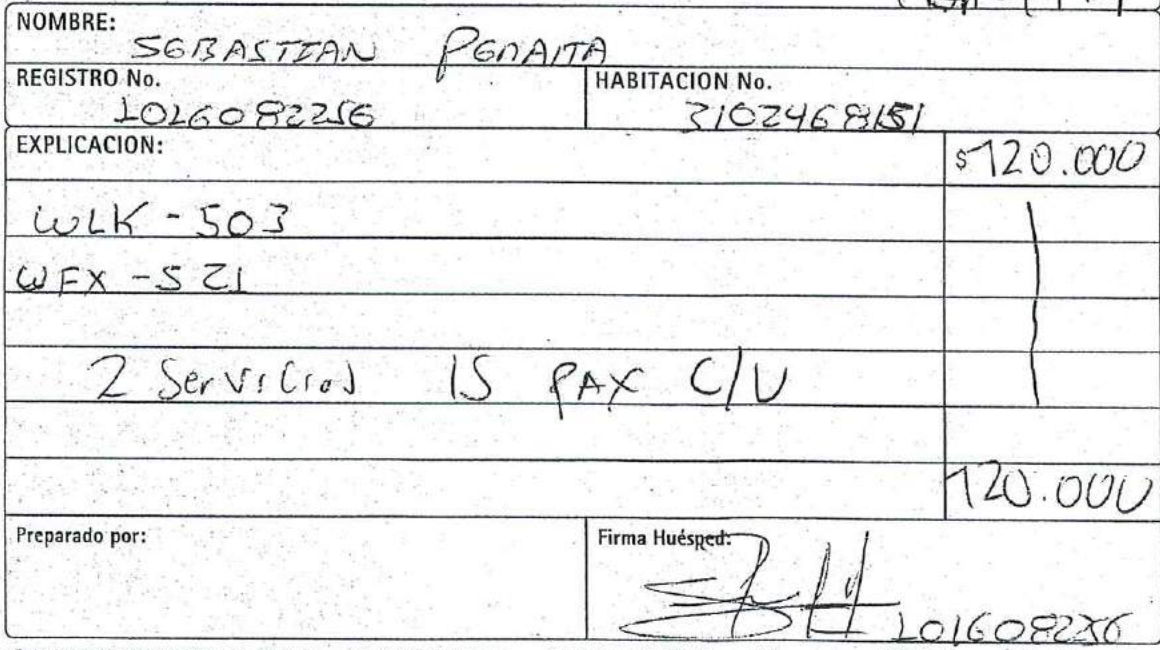 NOMBRE:
SEBASTIAN
REGISTRO No. HABITACION No.
1016082256 3102468151
EXPLICACION: $120.000
WLK - 503
WFX - 521
2 Servicios 15 PAX C/U
120.000
Preparado por: Firma Huésped:
1016082256